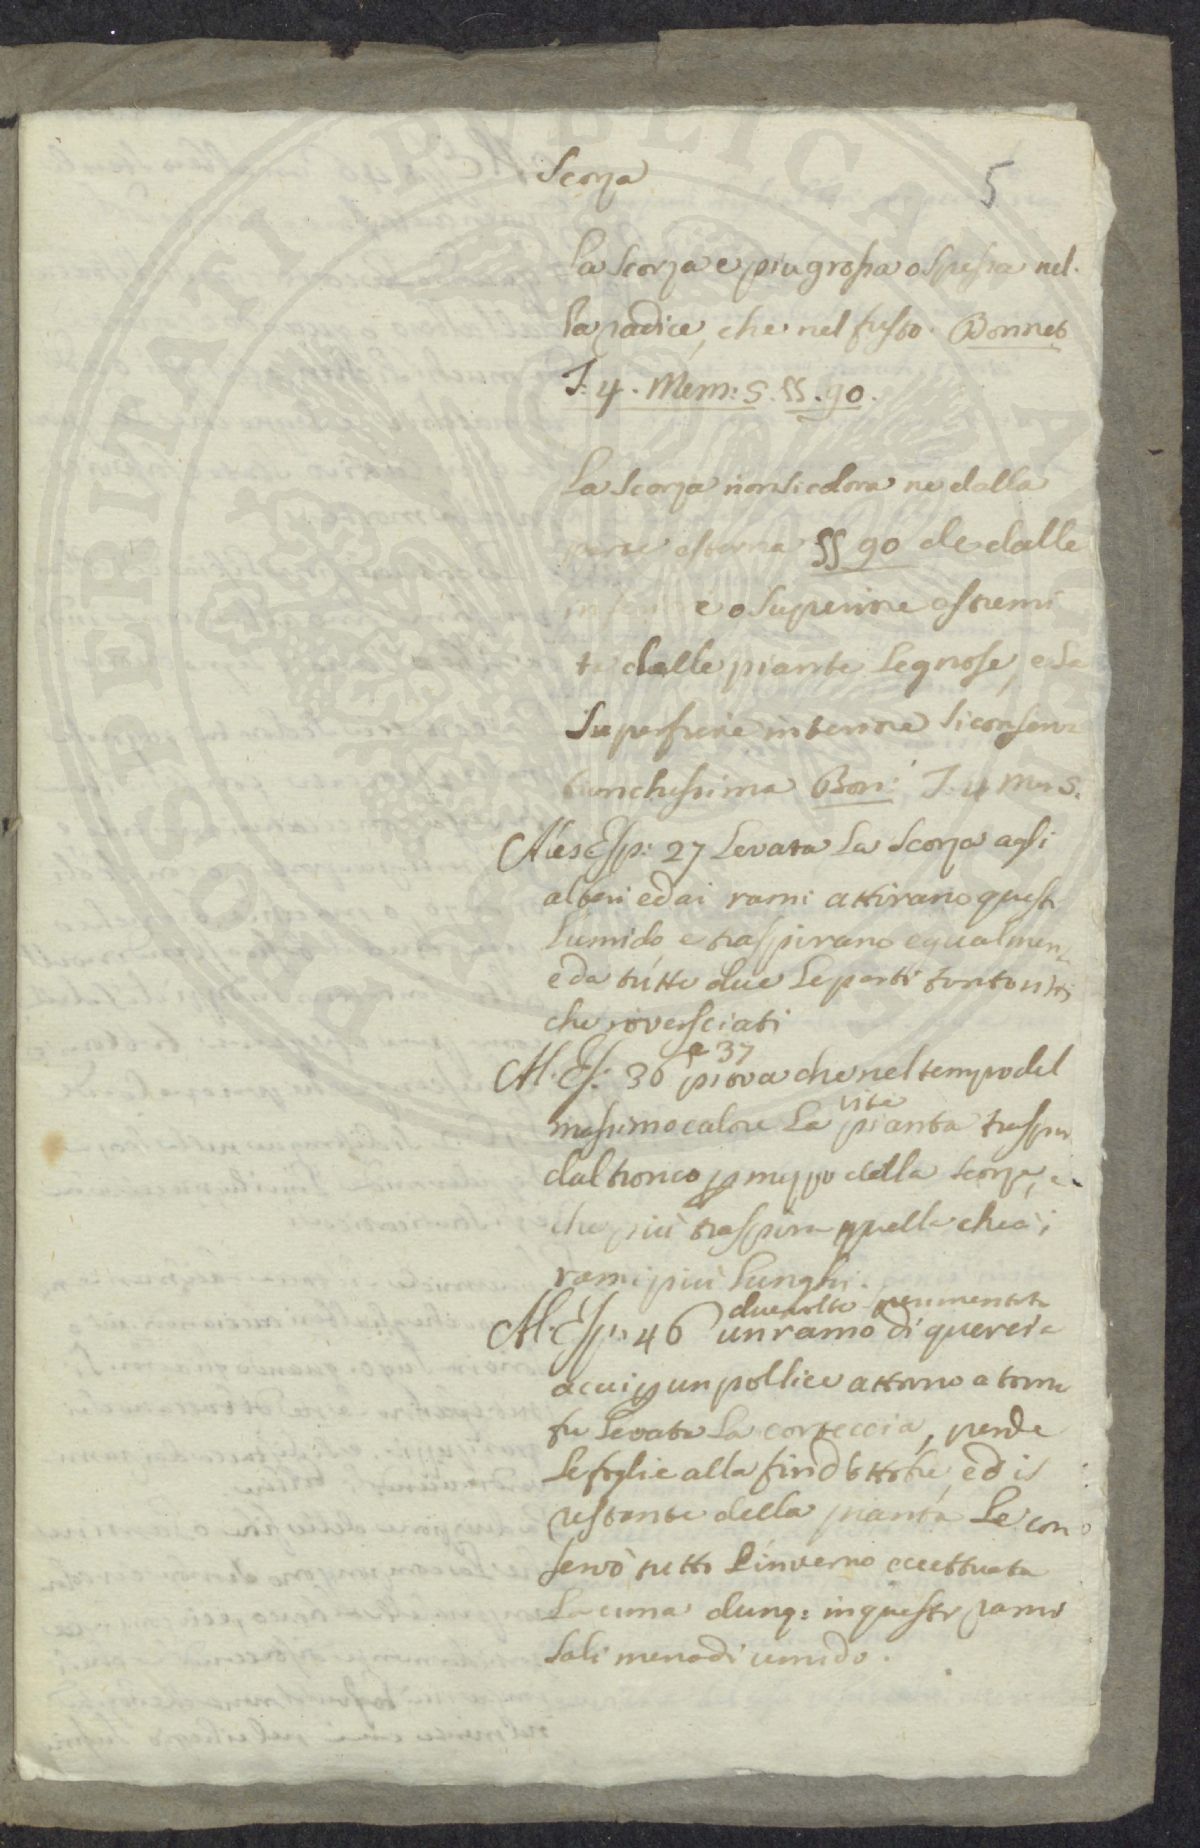 Scorza
5
la scorza e piu grossa o spessa nel-
la radice, che nel fusto. Bonnet
T. 4. Mem: 5. §§. 90.
La scorza non si colora ne dalla
parte esterna §§ 90 ne dalle
inferiore o superiore estremi
ta delle piante legnose, e la
superficie interiore si conserva
bianchissima Bon: T. 4 Mem 5.
Ales Esp: 27 Levata la scorza agli
alberi ed ai rami attirano questi
l'umido e traspirano egualmen
e da tutte due le parti tanto
che rovesciati
Al. Es: 36 e 37 prova che nel tempo del
massimo calore la pianta vite traspira
dal tronco per mezzo della scorza, e
che più traspira quella che à i
rami più lunghi.
Al. Esp: 46 due volte sperimentate un ramo di quercia
a cui per un pollice attorno attorno
fu levata la corteccia, perde
le foglie alla fin d'ottobre, ed il
restante della pianta le con
servò tutto l'inverno eccettuata
la cima dunq: in questo ramo
sali meno di umido.
PROSPERITATI PUBLICAE AUGENDAE